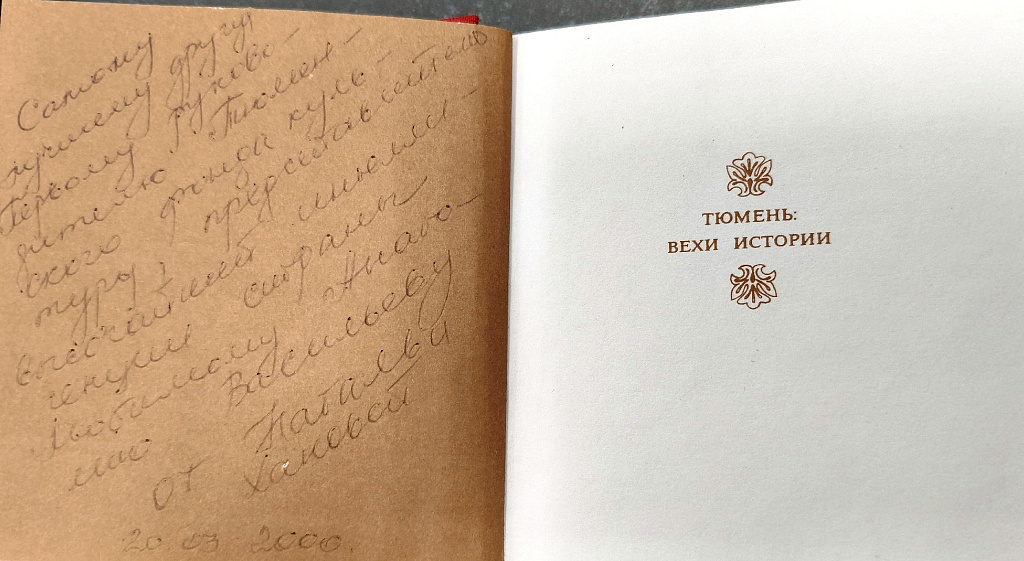 Самому
лучшему другу
Первому руково-
дителю Тюмен-
ского фонда куль-
туры, представителю
высочайшей интелли-
генции страны
Любимому Анато-
лию Васильеву
от Натальи
20 03 2000.
ТЮМЕНЬ:
ВЕХИ ИСТОРИИ